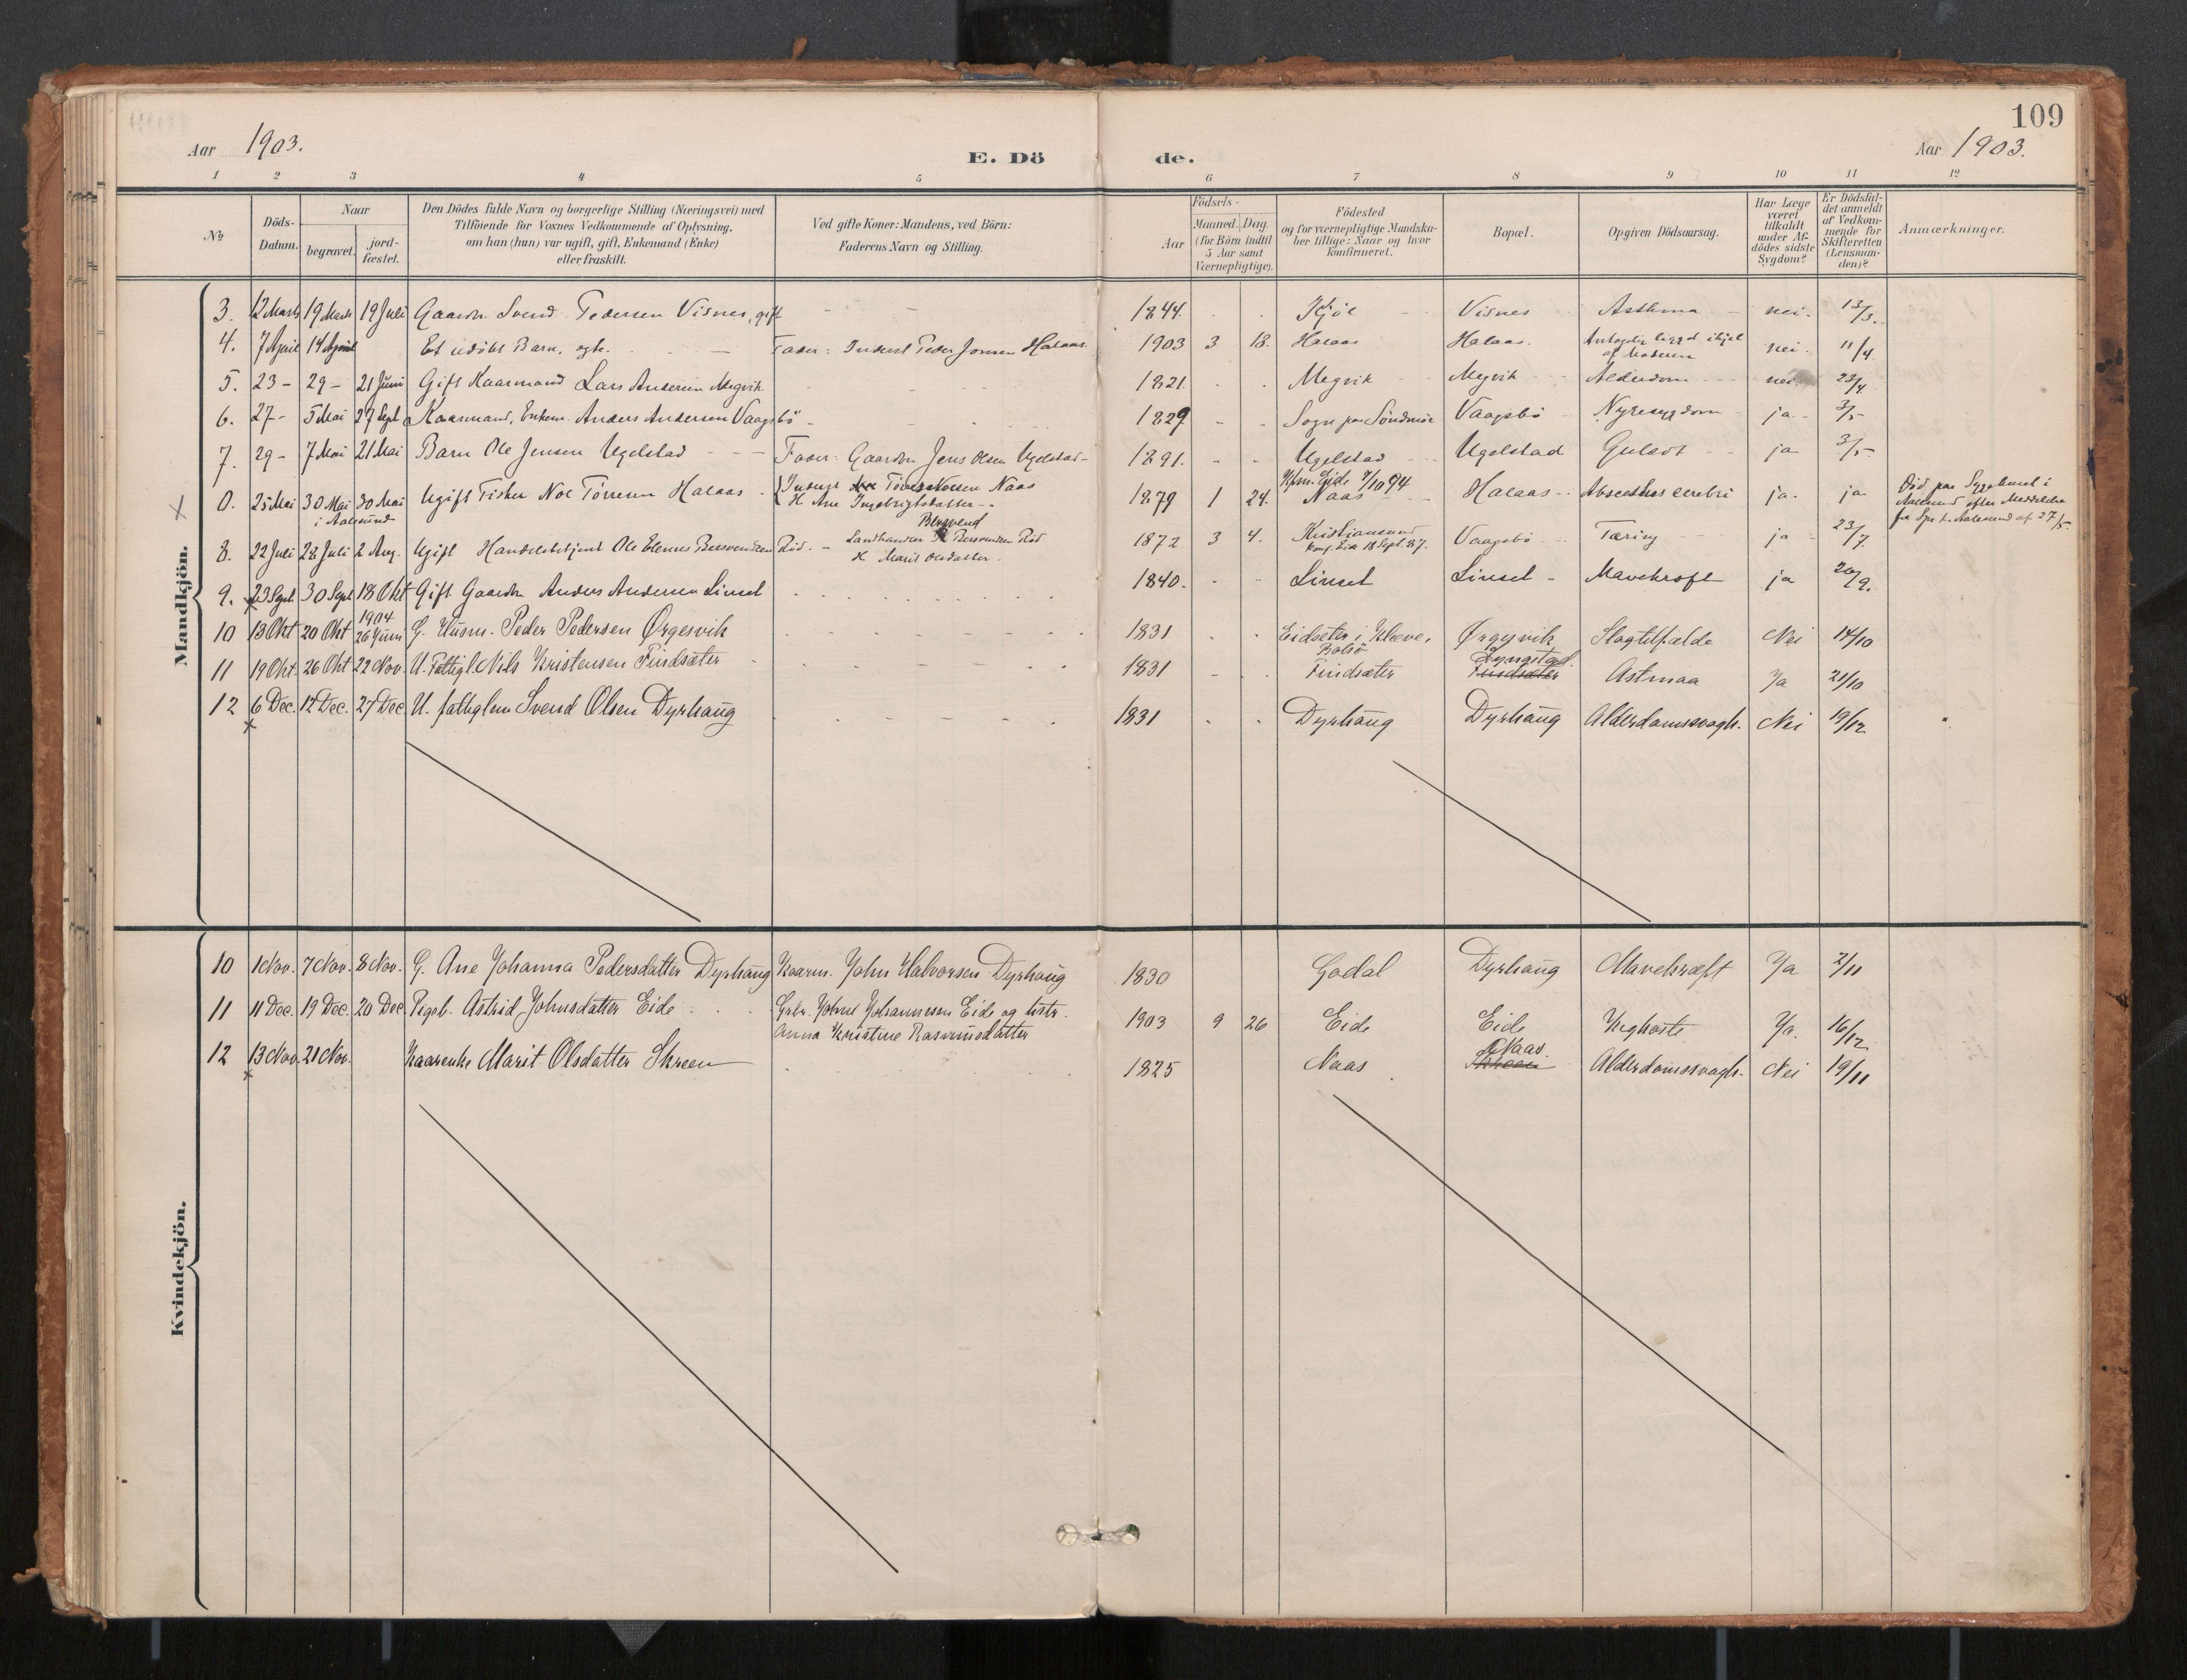 109
Aar 1903.
E. Dö de.
Aar 1903.
1 2 3 4 5 6 7 8 9 10 11 12
No
Döds-Datum.
Naar
begravet.
jord-fæstet.
Den Dödes fulde Navn og borgerlige Stilling (Næringsvei) med
Tilföiende for Voxnes Vedkommende af Oplysning,
om han (hun) var ugift, gift, Enkemand (Enke)
eller fraskilt.
Ved gifte Koner: Mandens, ved Börn:
Faderens Navn og Stilling.
Födsels-
Aar
Maaned. Dag.
(for Börn indtil
5 Aar samt
Værnepligtige).
Födested
og for værnepligtige Mandska-
ber tillige: Naar og hvor
konfirmeret.
Bopæl.
Opgiven Dödsaarsag.
Har Læge
været
tilkaldt
under Af-
dödes sidste
Sygdom?
Er Dödsfal-
det anmeldt
af Vedkom-
mende for
Skifteretten
(Lensman-
den)?
Anmærkninger.
Mandkjön.
3. 12 Marts 19 Marts 19 Juli Gaardm. Svend Pedersen Visnes, gift - - 1844. Kjöl Visnes Asthma nei. 13/3.
4. 7 April 14 April Et udöbt Barn, egte. Fader: Inderst Peder Jonsen Halaas 1903 3 18. Halaas Halaas. Antagelig ligget ihjel
af Moderen nei. 11/4
5. 23 - 29 - 21 Juni Gift Kaarmand Lars Andersen Megvik 1821. Megvik Megvik Alderdom nei 23/4
6. 27 - 5 Mai 27 Sept Kaarmand, Enkem. Anders Andersen Vaagsbö - 1829 - - Sogn paa Söndmör Vaagsbö Nyresygdom ja 3/5
7. 29 - 7 Mai 21 Mai Barn Ole Jensen Ugelstad Fader: Gaardm. Jens Olsen Ugelstad - 1891. - - Ugelstad Ugelstad Gulsot ja 3/5
8. 25 Mai 30 Mai 30 Mai Ugift Fisker Nils Törresen Halaas
i Aalesund
Naas
H. Ane Ingebrigtsdatter 1879 1 24. Kfm. Eide 7/10 94
Naas Halaas Abscessus cerebri ja. ja Död paa Sygehuset i
Aalesund efter Meddelelse
fra Spr. t. Aalesund af 27/5
8. 22 Juli 28 Juli 2 Aug. Ugift Handelsbetjent Ole Elenus Bersvendsen Röd. - Landhandler Bersvend Bersvendsen Röd
H. Marit Olsdatter 1872 3 4. Kristiansund
Konf. Eide 18 Sept. 87. Vaagsbö Tæring ja 23/7.
9. 23 Sept. 30 Sept 18 Okt Gift Gaardm. Anders Andersen Linset 1840. Linset Linset - Mavekræft ja 26/9.
10 13 Okt 20 Okt 1904
26 Juni G. Husm. Peder Pedersen Ørgesvik 1831 Eidseter i Kleve,
Bolsö Ørgesvik Slagtilfælde Nei 14/10
11 19 Okt. 26 Okt 22 Nov. U. Fattigl. Nils Kristensen Findsæter 1831 Findsæter Lyngstad
Findsæter Astmaa Ja 21/10
12 6 Dec. 12 Dec. 27 Dec U. fattiglem Svend Olsen Dyrhaug 1831 Dyrhaug Dyrhaug Alderdomssvagh. Nei 19/12
Kvindekjön.
10 1 Nov. 7 Nov. 8 Nov. G. Ane Johanna Pedersdatter Dyrhaug Kaarm. John Halvorsen Dyrhaug 1830 Gadal Dyrhaug Mavekræft Ja 2/11
11 11 Dec. 19 Dec. 20 Dec Pigeb. Astrid Johnsdatter Eide Gabr. John Johannesen Eide og hstr.
Anna Kristine Rasmusdatter 1903 9 26 Eide Eide Kighoste Ja. 16/12
12 13 Nov. 21 Nov. Kaarenke Marit Olsdatter Skreen 1825 Naas Naas.
Skreen Alderdomssvagh. Nei 19/11